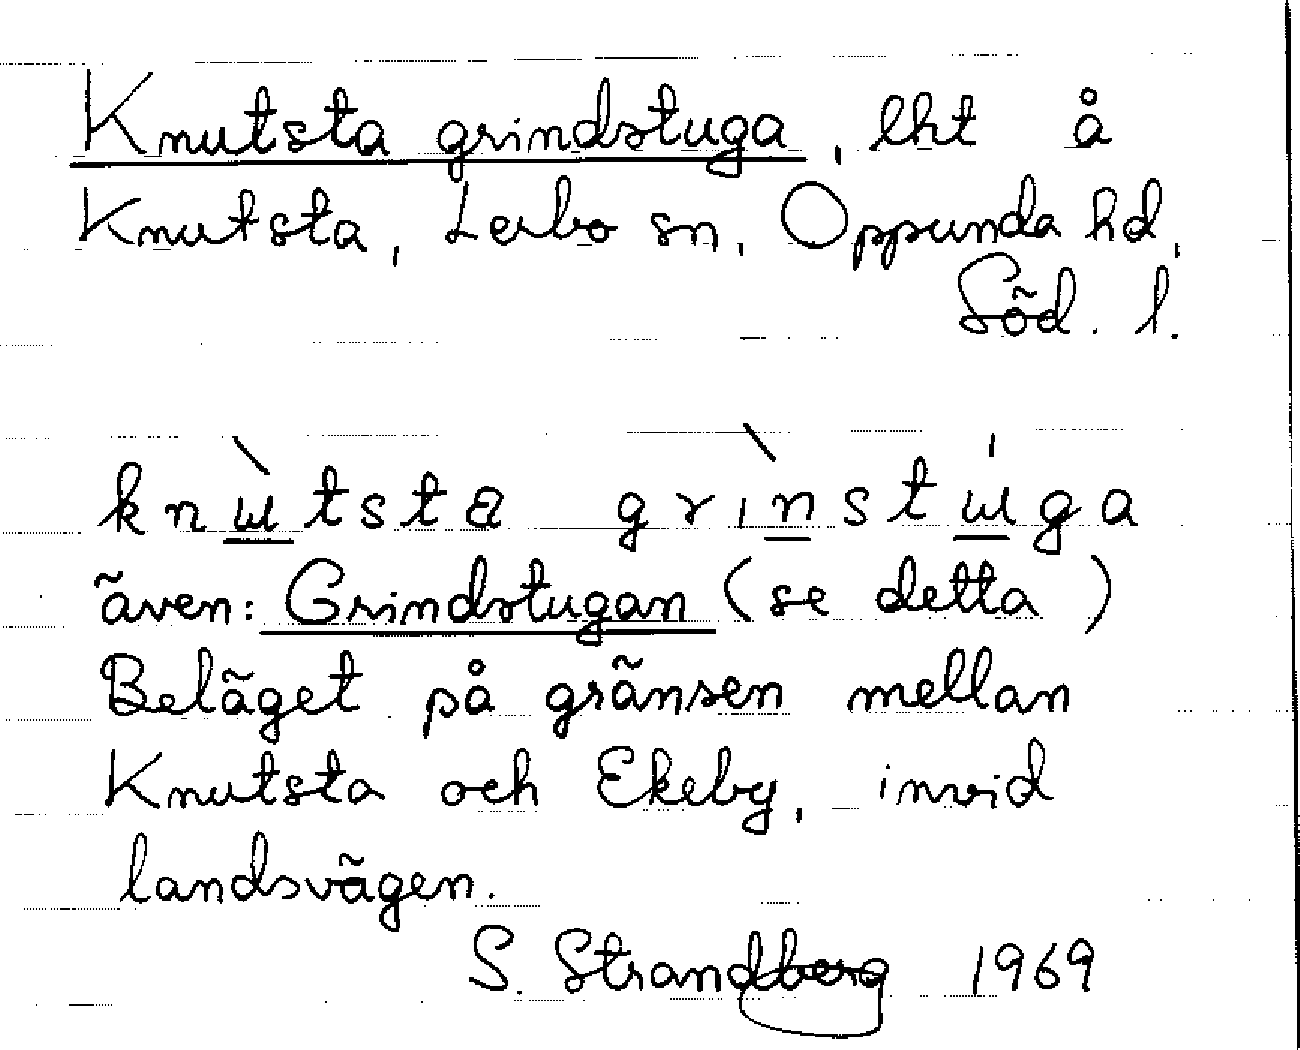 Knutsta grindstuga, lht å
Knutsta, Lerbo sn, Oppunda hd,
Söd. l.
knɯ̀tsta grìnstɯ́ga
även: Grindstugan (se detta)
Beläget på gränsen mellan
Knutsta och Ekeby, invid
landsvägen.
S. Strandberg 1969